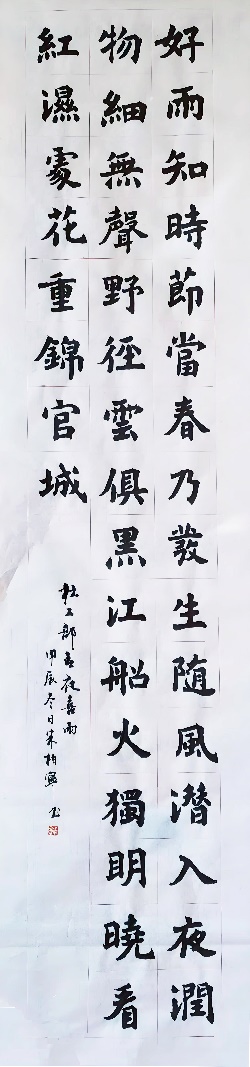 好雨知時節當春乃發生随風潜入夜潤
物細無聲野徑雲俱黑江船火獨明曉看
紅濕處花重錦官城
杜工部春夜喜雨
甲辰冬日